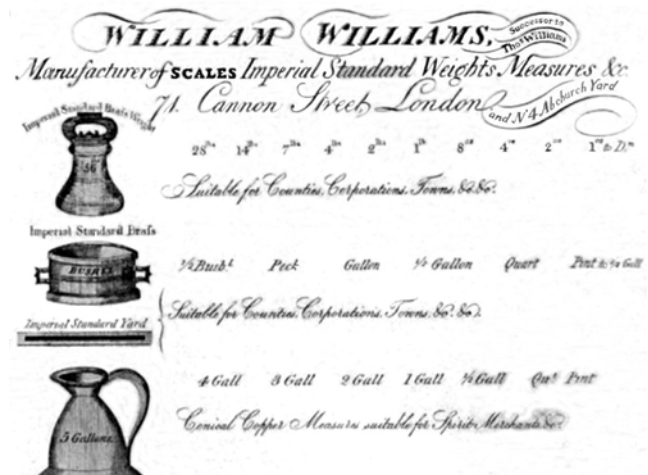 WILLIAM WILLIAMS,
Successor to
Thos Williams
Manufacturer of SCALES Imperial Standard Weights Measures &c.
71. Cannon Street, London
and No 4 Abchurch Yard
Imperial Standard Brass Weight
56
28lbs 14lbs 7lbs 4lbs 2lbs 1lb 8oz 4oz 2oz 1oz to Dm
Suitable for Counties, Corporations, Towns, &c. &c.
Imperial Standard Brass
BUSHEL
1/2 Bushl Peck Gallon 1/2 Gallon Quart Pint to Gill
Suitable for Counties, Corporations, Towns, &c. &c.
Imperial Standard Yard
4 Gall 3 Gall 2 Gall 1 Gall 1/2 Gall Qut Pint
Conical Copper Measures suitable for Spirit Merchants &c.
5 Gallons